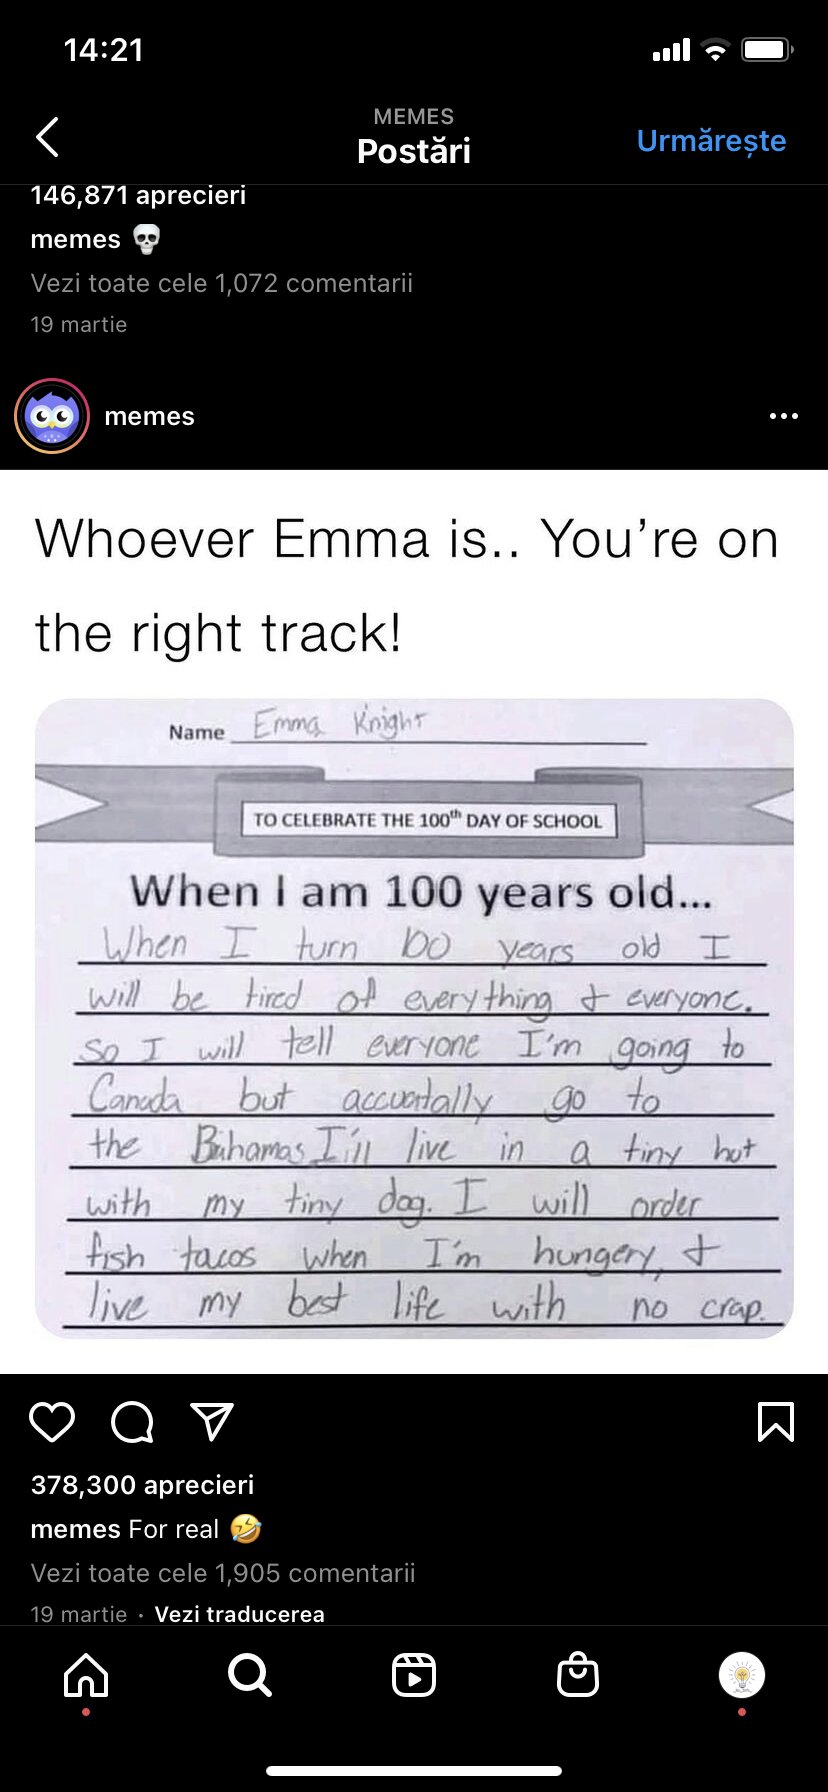 14:21
MEMES
Postări
Urmărește
146,871 aprecieri
memes 💀
Vezi toate cele 1,072 comentarii
19 martie
memes
Whoever Emma is.. You're on
the right track!
Name Emma Knight
TO CELEBRATE THE 100th DAY OF SCHOOL
When I am 100 years old...
When I turn 100 years old I
will be tired of everything & everyone.
So I will tell everyone I'm going to
Canada but accuatally go to
the Bahamas I'ill live in a tiny hut
with my tiny dog. I will order
fish tacos when I'm hungery, &
live my best life with no crap.
378,300 aprecieri
memes For real 🤣
Vezi toate cele 1,905 comentarii
19 martie · Vezi traducerea